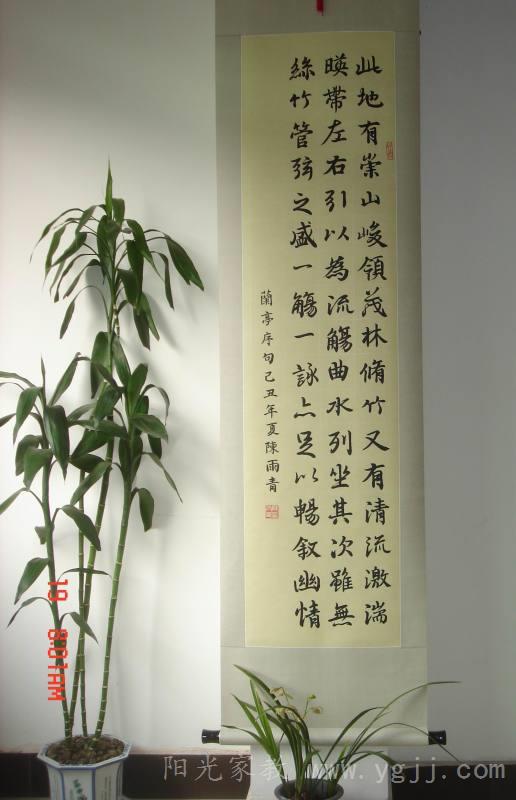 此地有崇山峻領茂林脩竹又有清流激湍
暎帶左右引以為流觴曲水列坐其次雖無
絲竹管弦之盛一觴一詠亦足以暢敘幽情
蘭亭序句己丑年夏陳雨青
19 8:01AM
阳光家教 www.ygjj.com